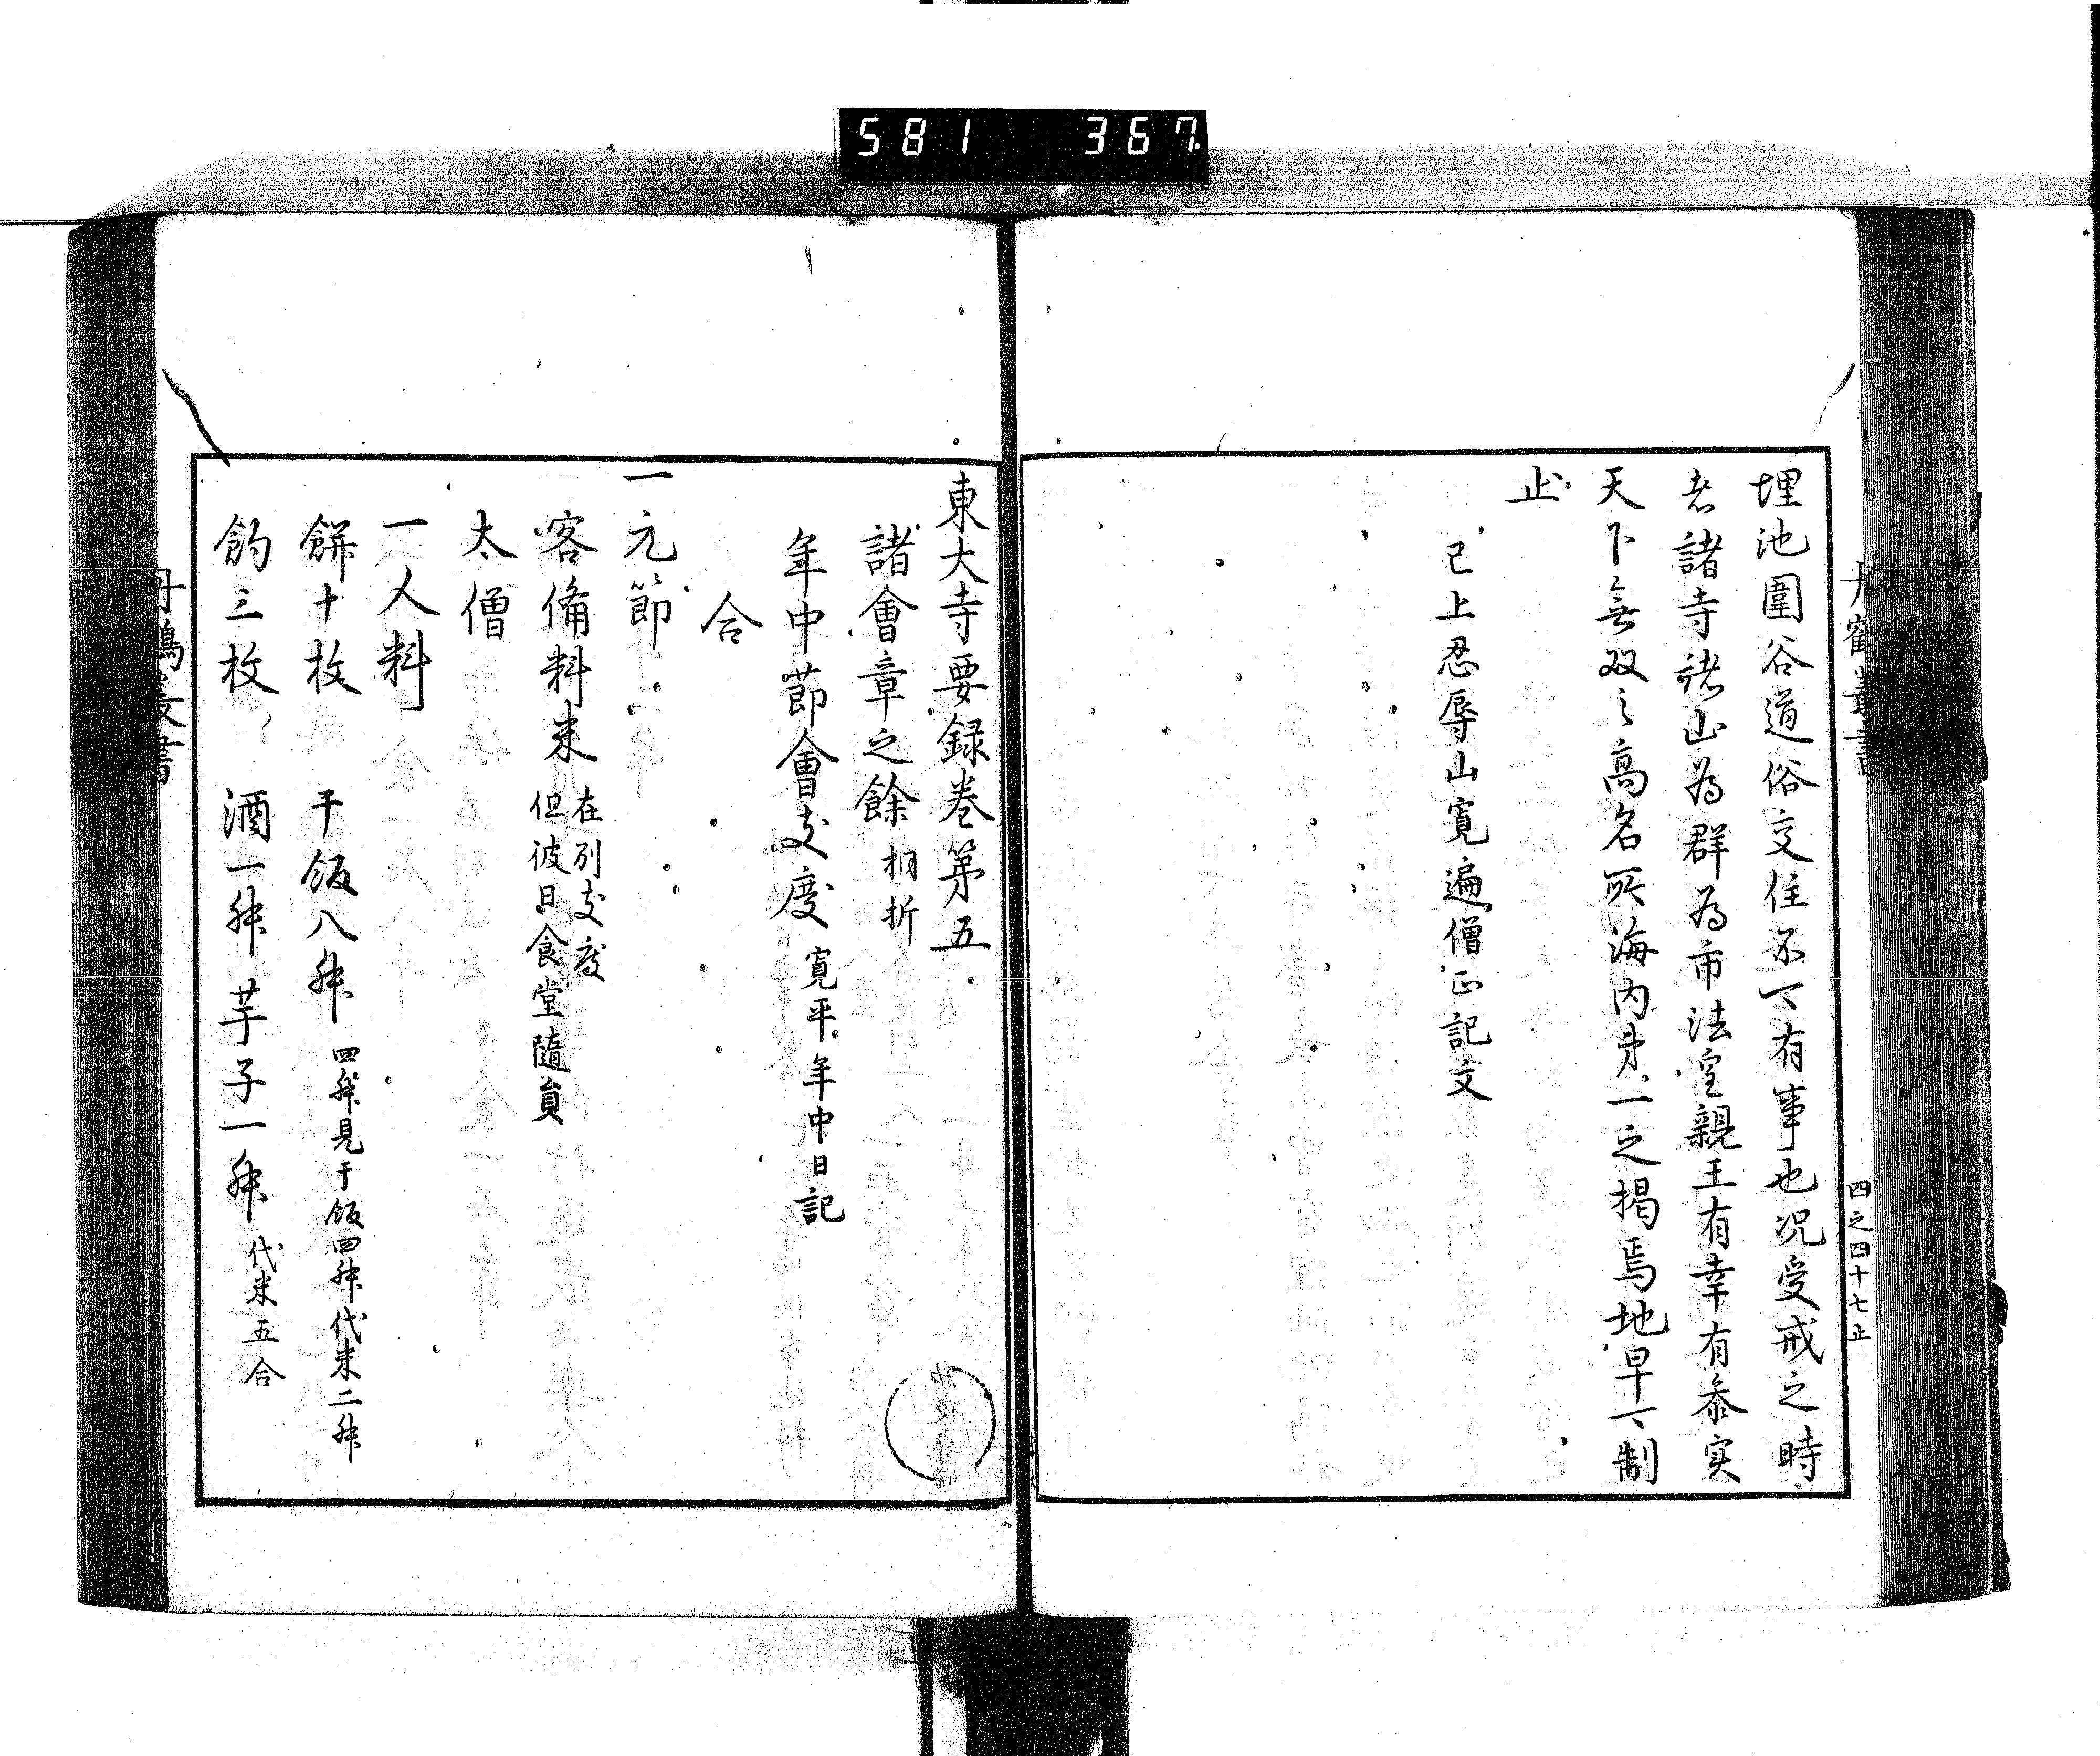 581 367
丹鶴叢書
四之四十七止
埋池圍谷道俗交住不可有事也况受戒之時
者諸寺諸山為群為市法皇親王有幸有参实
天下無双之高名所海内第一之揭焉地早可制
止
已上忍辱山寛遍僧正記文
東大寺要録巻第五
諸會章之餘 相折
年中節會支度 寛平年中日記
合
一元節
客備料米 在列支度
但彼日食堂隨負
太僧
一人料
餅十枚 干飯八舛 四舛見干飯四舛代米二舛
餉三枚 酒一舛 芋子一舛 代米五合